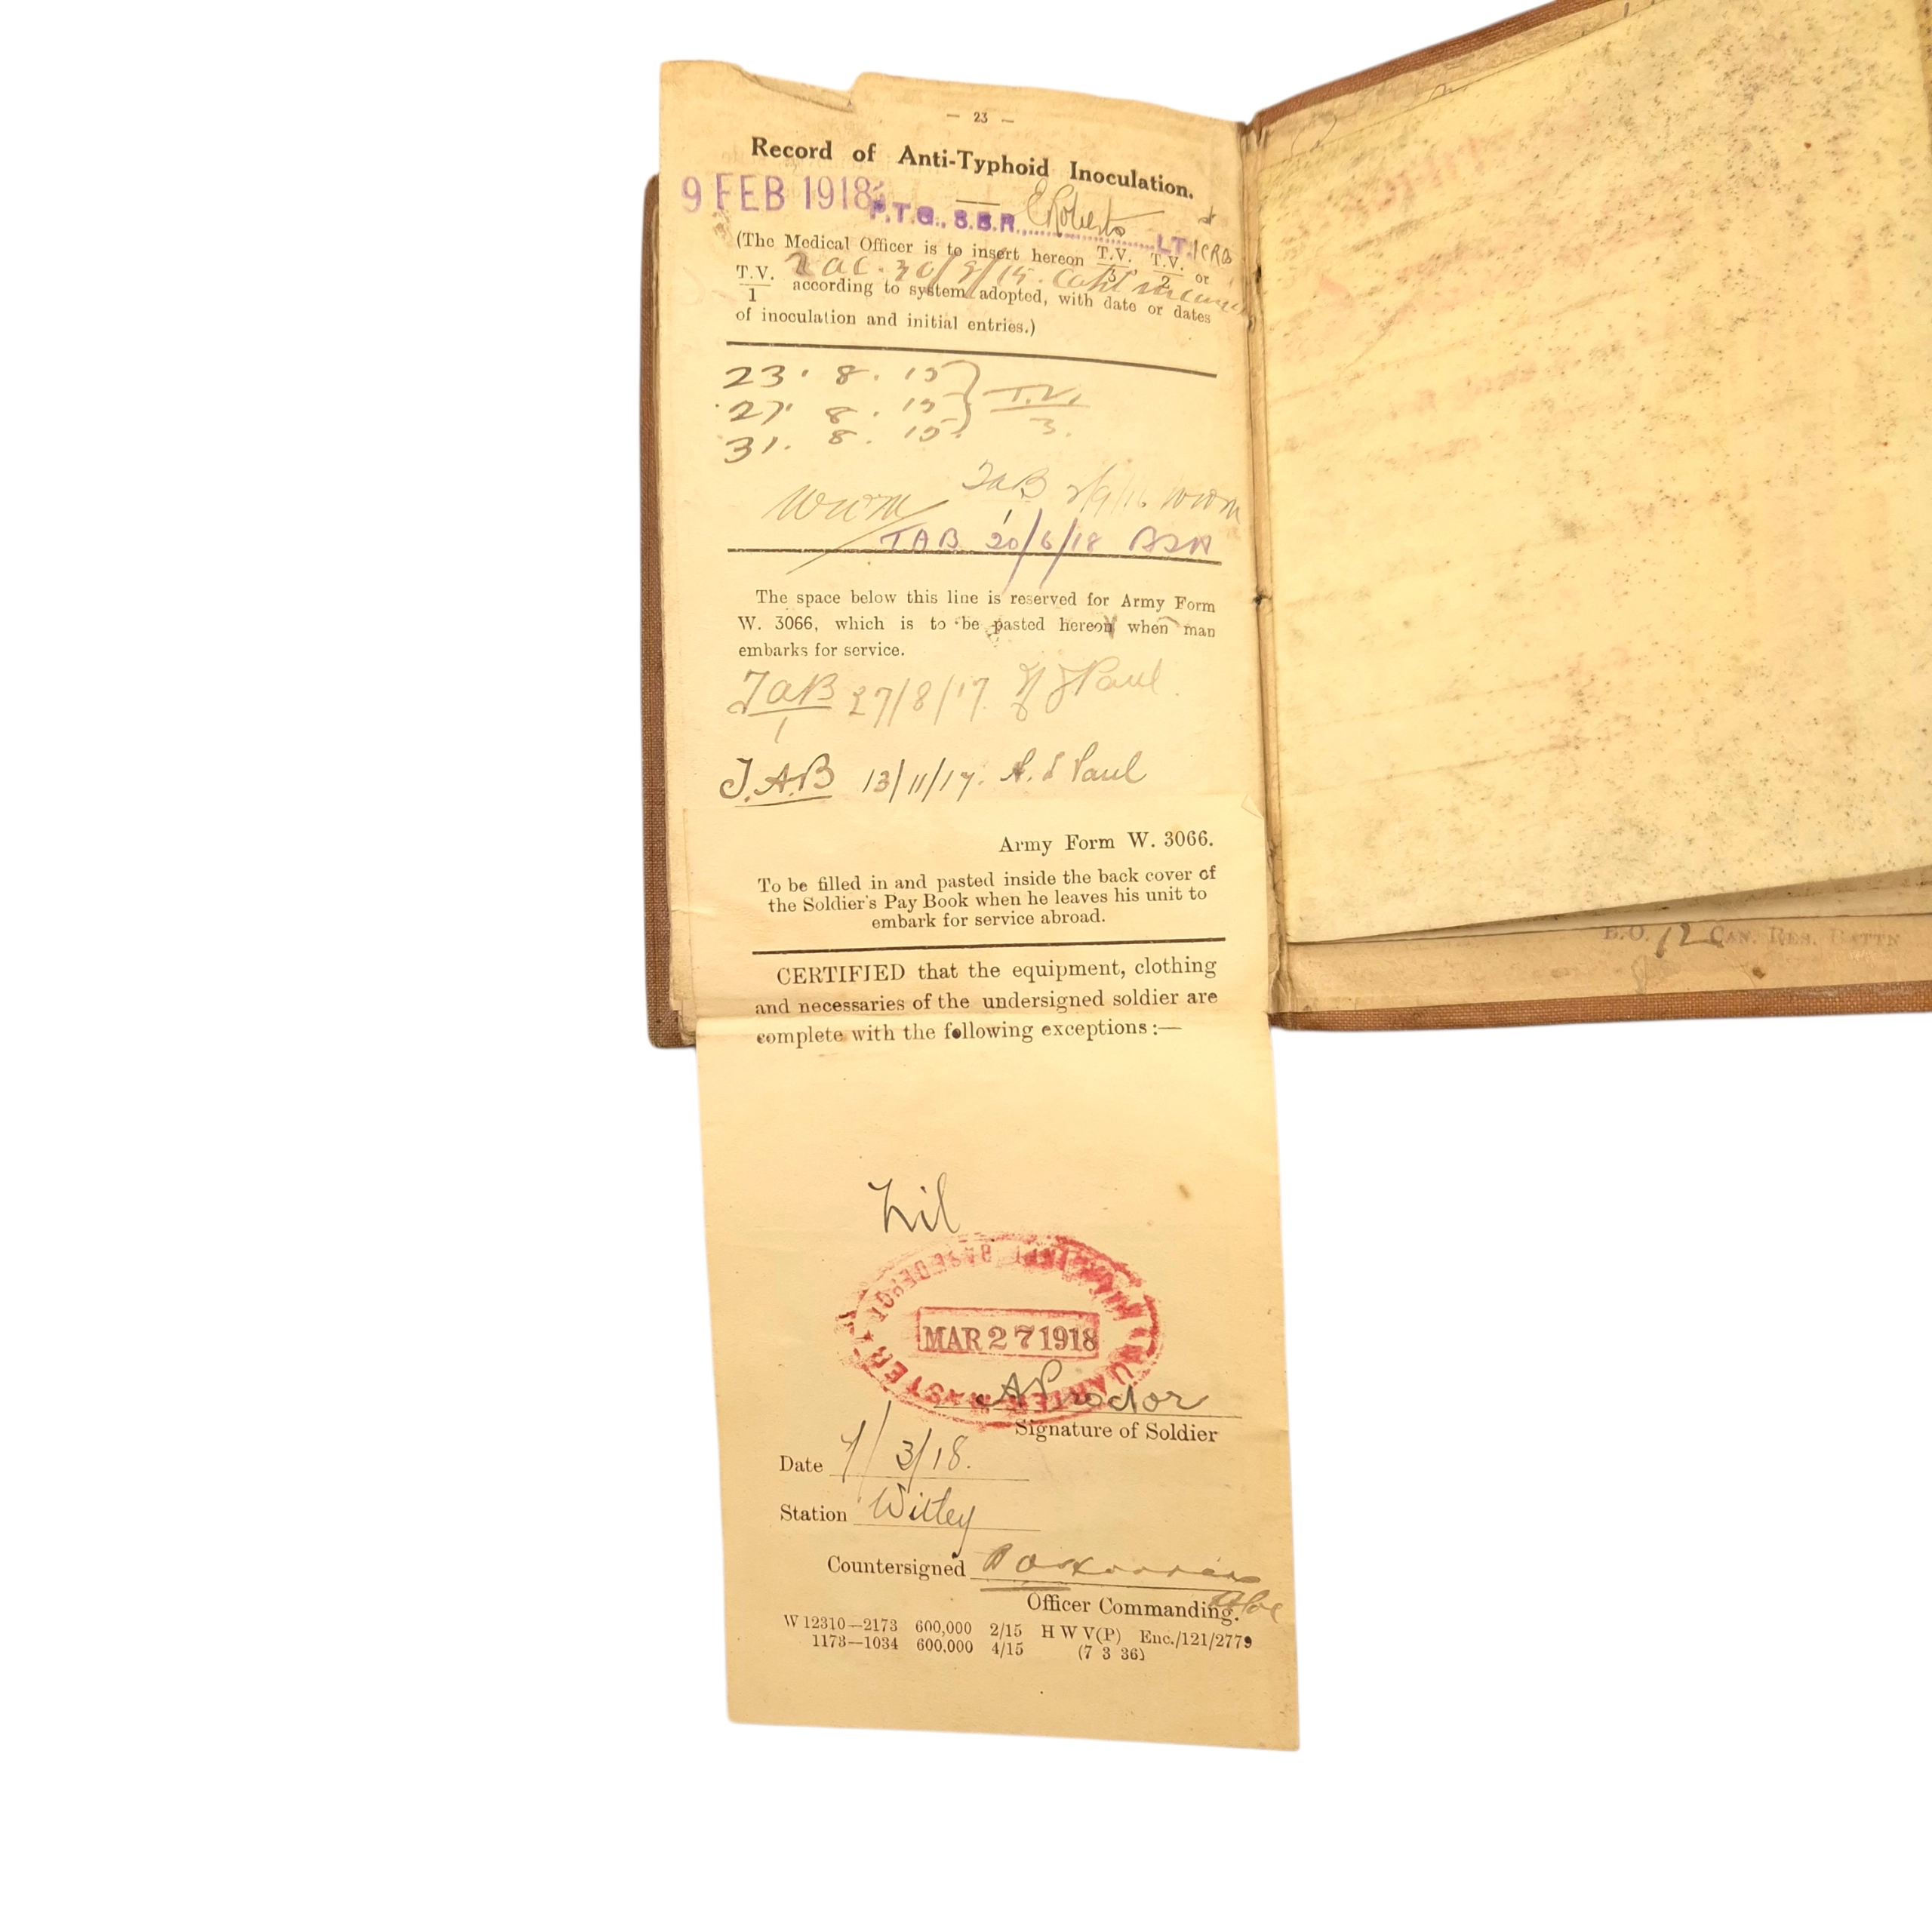 — 23 —
Record of Anti-Typhoid Inoculation.
9 FEB 1918
P.T.G., S.B.R. E Roberts LT.
(The Medical Officer is to insert hereon T.V./3, T.V./2 or
T.V./1 according to system adopted, with date or dates
of inoculation and initial entries.)
23. 8. 15
27. 8. 15 T.V./3.
31. 8. 15
WWM TaB WWM
TAB 20/6/18
The space below this line is reserved for Army Form
W. 3066, which is to be pasted hereon when man
embarks for service.
TaB/1 27/8/17 Paul
T.A.B 13/11/17. Paul
Army Form W. 3066.
To be filled in and pasted inside the back cover of
the Soldier's Pay Book when he leaves his unit to
embark for service abroad.
CERTIFIED that the equipment, clothing
and necessaries of the undersigned soldier are
complete with the following exceptions :—
Nil
BASE DEPOT
MAR 27 1918
QUARTERMASTER
A Proctor
Signature of Soldier
Date 7/3/18.
Station Witley
Countersigned
Officer Commanding.
W 12310—2173 600,000 2/15 H W V(P) Enc./121/2779
1173—1034 600,000 4/15 (7 3 36)
B.O. 12 CAN. RES. BATTN